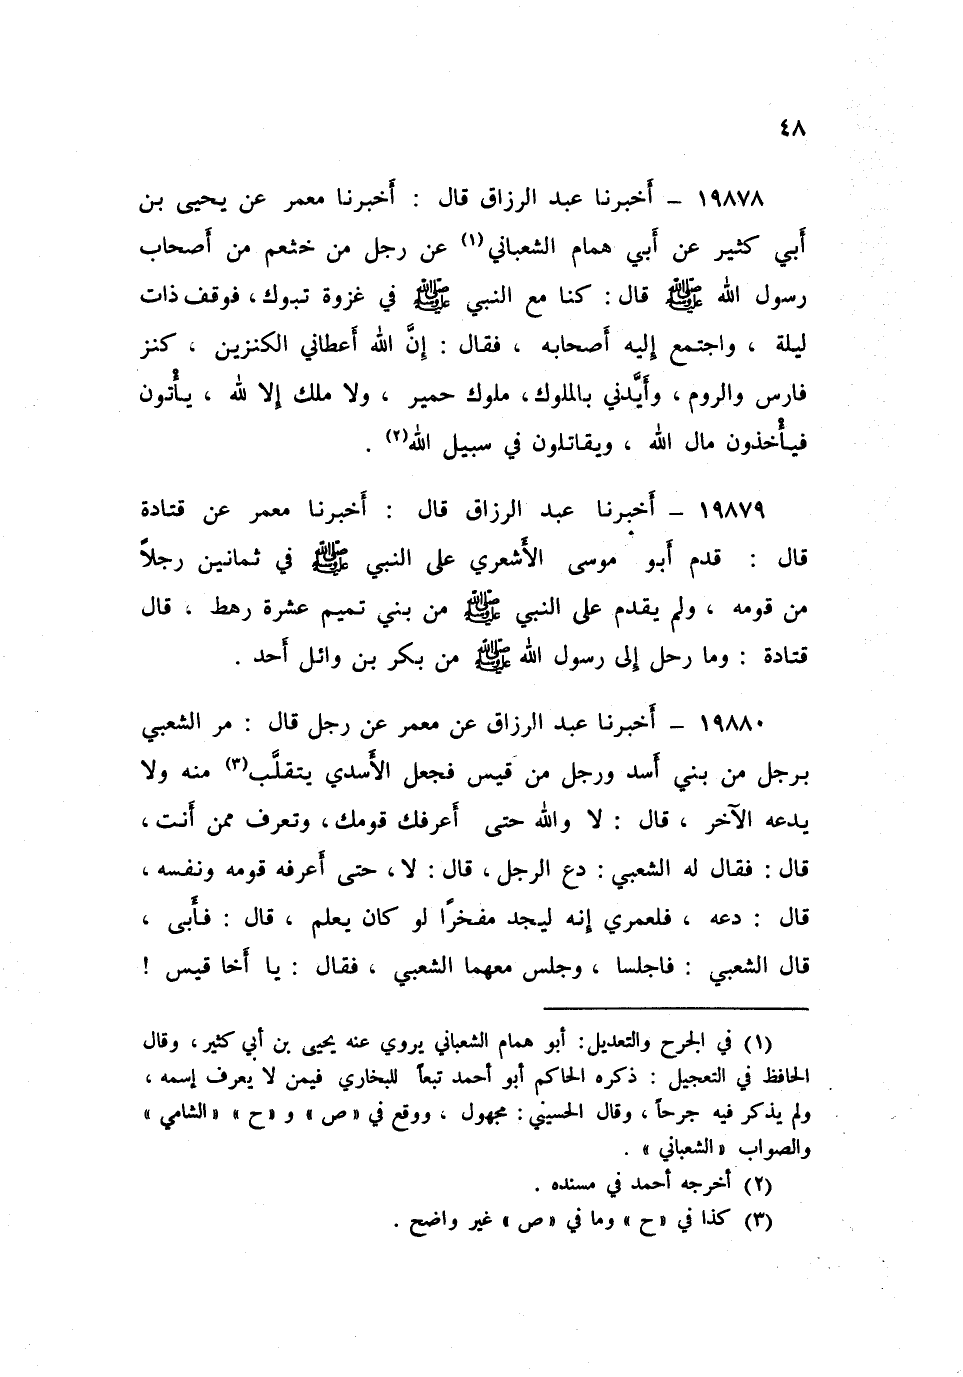 ٤٨
١٩٨٧٨ ـ أَخبرنا عبد الرزاق قال : أَخبرنا معمر عن يحيى بن
أَبي كثير عن أَبي همام الشعباني(١) عن رجل من خثعم من أَصحاب
رسول الله ﷺ قال : كنا مع النبي ﷺ في غزوة تبوك ، فوقف ذات
ليلة ، واجتمع إليه أَصحابه ، فقال : إنَّ الله أَعطاني الكنزين ، كنز
فارس والروم ، وأَيَّدني بالملوك ، ملوك حمير ، ولا ملك إلا لله ، يأْتون
فيأْخذون مال الله ، ويقاتلون في سبيل الله(٢) .
١٩٨٧٩ ـ أَخبرنا عبد الرزاق قال : أَخبرنا معمر عن قتادة
قال : قدم أَبو موسى الأَشعري على النبي ﷺ في ثمانين رجلاً
من قومه ، ولم يقدم على النبي ﷺ من بني تميم عشرة رهط ، قال
قتادة : وما رحل إلى رسول الله ﷺ من بكر بن وائل أَحد .
١٩٨٨٠ ـ أَخبرنا عبد الرزاق عن معمر عن رجل قال : مر الشعبي
برجل من بني أَسد ورجل من قيس فجعل الأَسدي يتقلَّب(٣) منه ولا
يدعه الآخر ، قال : لا والله حتى أَعرفك قومك ، وتعرف ممن أَنت ،
قال : فقال له الشعبي : دع الرجل ، قال : لا ، حتى أَعرفه قومه ونفسه ،
قال : دعه ، فلعمري إنه ليجد مفخرًا لو كان يعلم ، قال : فأَبى ،
قال الشعبي : فاجلسا ، وجلس معهما الشعبي ، فقال : يا أَخا قيس !
(١) في الجرح والتعديل : أبو همام الشعباني يروي عنه يحيى بن أبي كثير ، وقال
الحافظ في التعجيل : ذكره الحاكم أبو أحمد تبعاً للبخاري فيمن لا يعرف إسمه ،
ولم يذكر فيه جرحاً ، وقال الحسيني : مجهول ، ووقع في « ص » و « ح » « الشامي »
والصواب « الشعباني » .
(٢) أخرجه أحمد في مسنده .
(٣) كذا في « ح » وما في « ص » غير واضح .